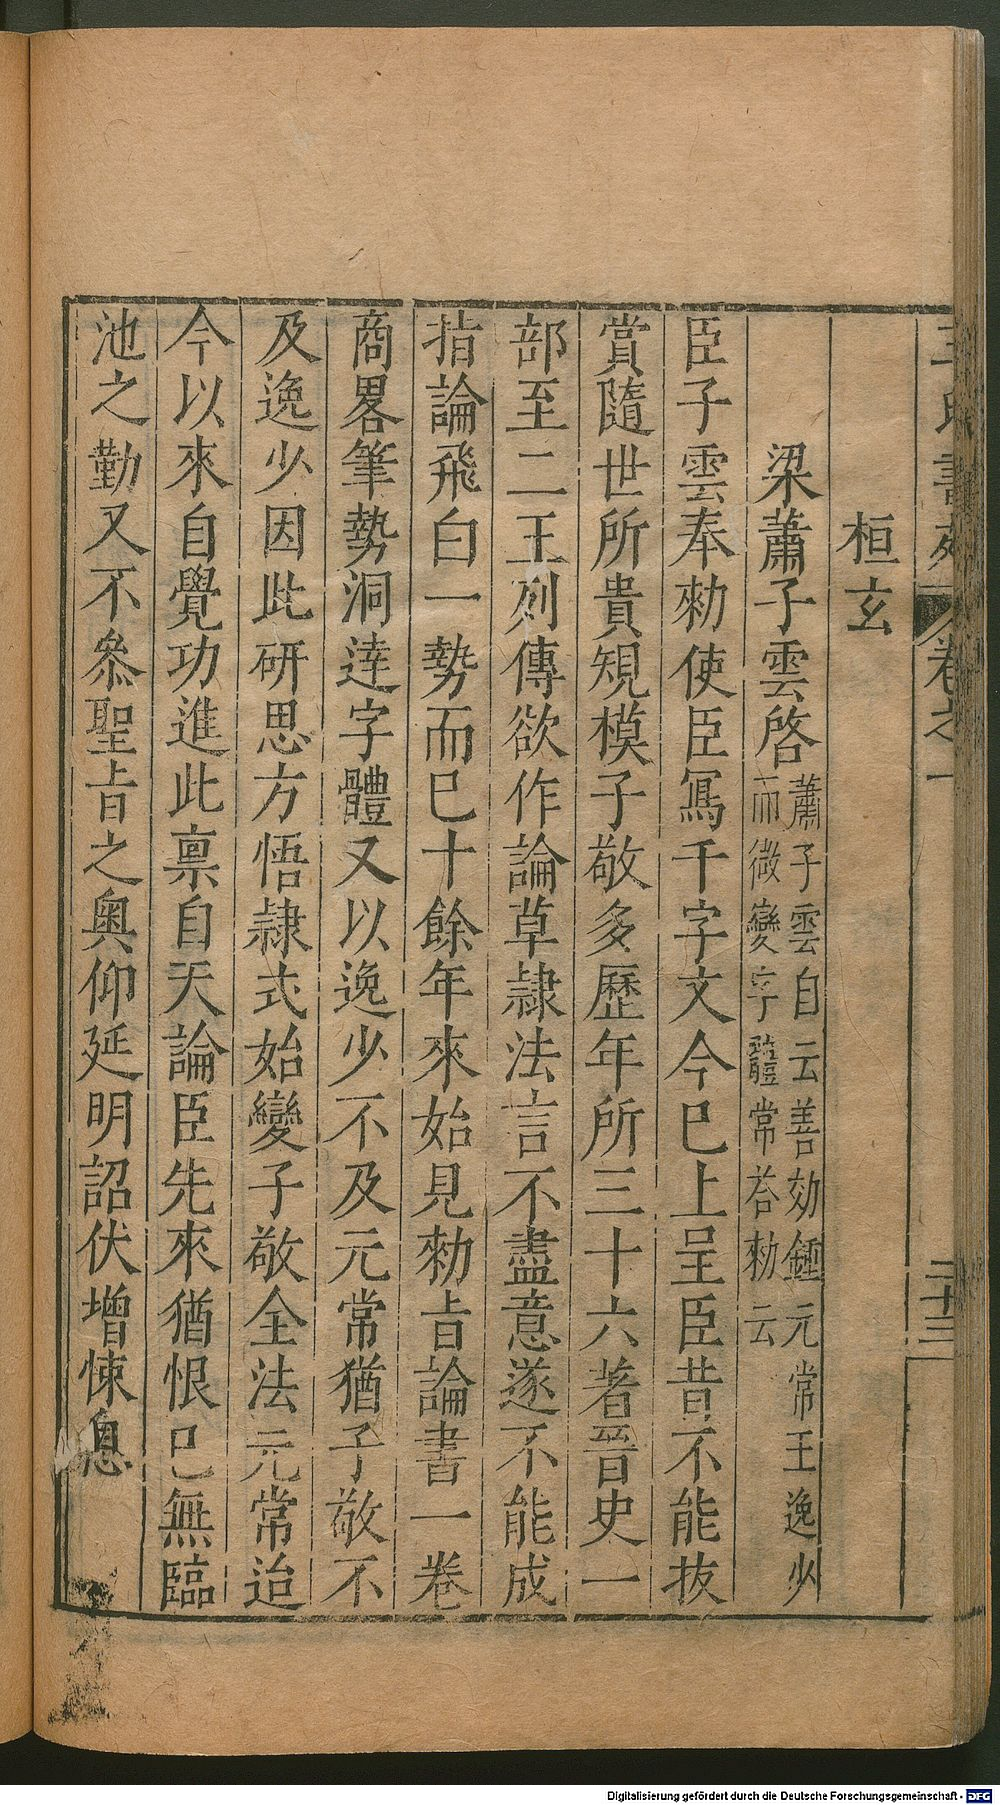 王氏書苑 卷之一 二十三
桓玄
梁蕭子雲啓 蕭子雲自云善効鍾元常王逸少
而微變字體常荅勑云
臣子雲奉勑使臣寫千字文今巳上呈臣昔不能拔
賞隨世所貴規模子敬多歷年所三十六著晉史一
部至二王列傳欲作論草隷法言不盡意遂不能成
指論飛白一勢而巳十餘年來始見勑㫖論書一卷
商畧筆勢洞達字體又以逸少不及元常猶子敬不
及逸少因此研思方悟隷式始變子敬全法元常迨
今以來自覺功進此禀自天論臣先來猶恨巳無臨
池之勤又不叅聖㫖之奥仰延明詔伏增悚息
Digitalisierung gefördert durch die Deutsche Forschungsgemeinschaft - DFG